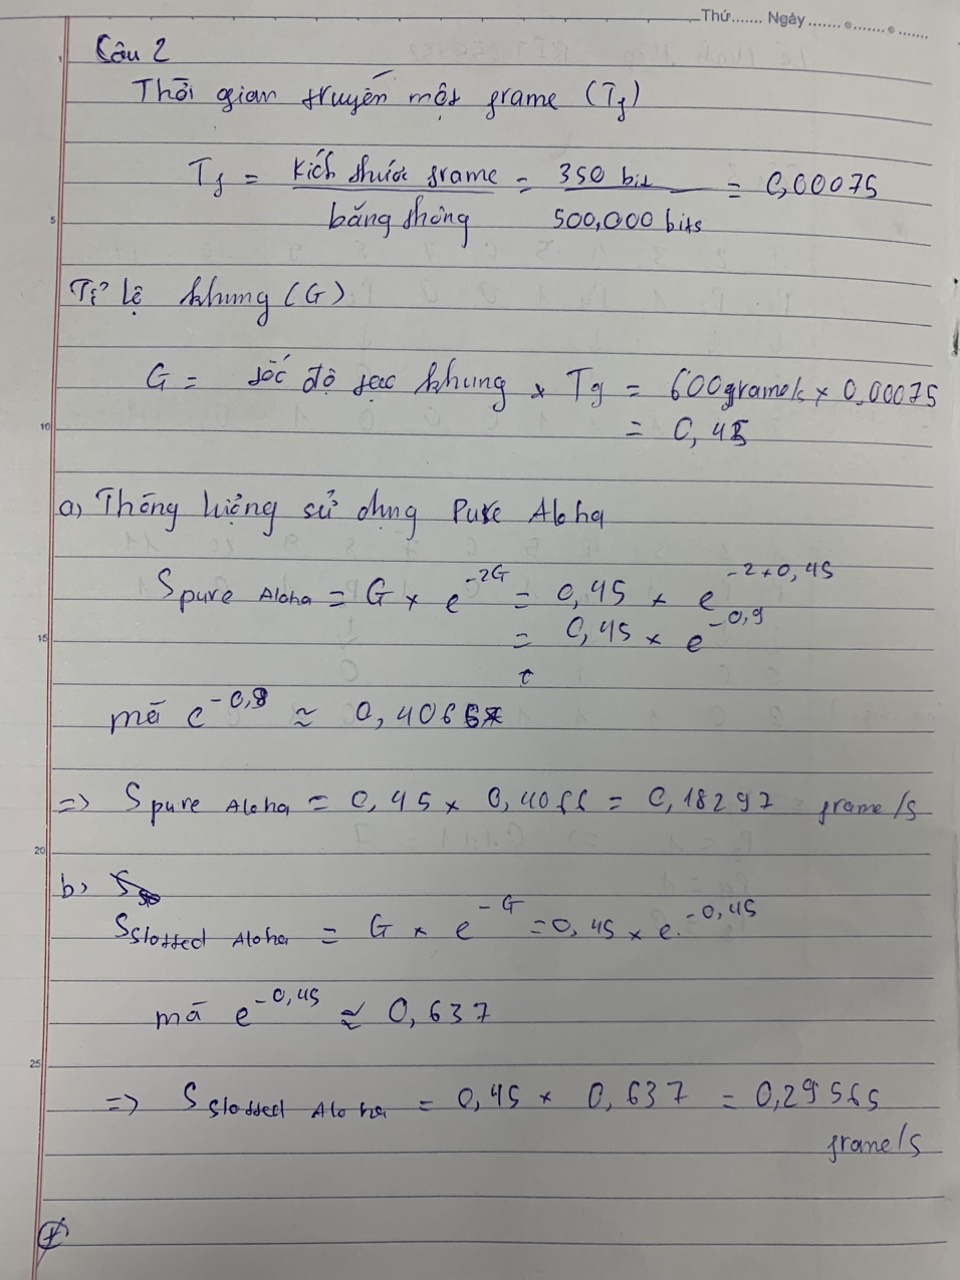 Thứ....... Ngày.......................
Câu 2
Thời gian truyền một frame (Tf)
Tf = kích thước frame / băng thông = 350 bit / 500,000 bits = 0,00075
5
Tỉ lệ khung (G)
G = tốc độ tạo khung × Tf = 600 frame/s × 0,00075
10
= 0,45
a, Thông lượng sử dụng Pure Aloha
S pure Aloha = G × e^-2G = 0,45 × e^-2×0,45
15
= 0,45 × e^-0,9
mà e^-0,9 ≈ 0,4066
=> S pure Aloha = 0,45 × 0,4066 = 0,18297 frame/s
20
b,
S Slotted Aloha = G × e^-G = 0,45 × e^-0,45
mà e^-0,45 ≈ 0,637
25
=> S Slotted Aloha = 0,45 × 0,637 = 0,29565
frame/s